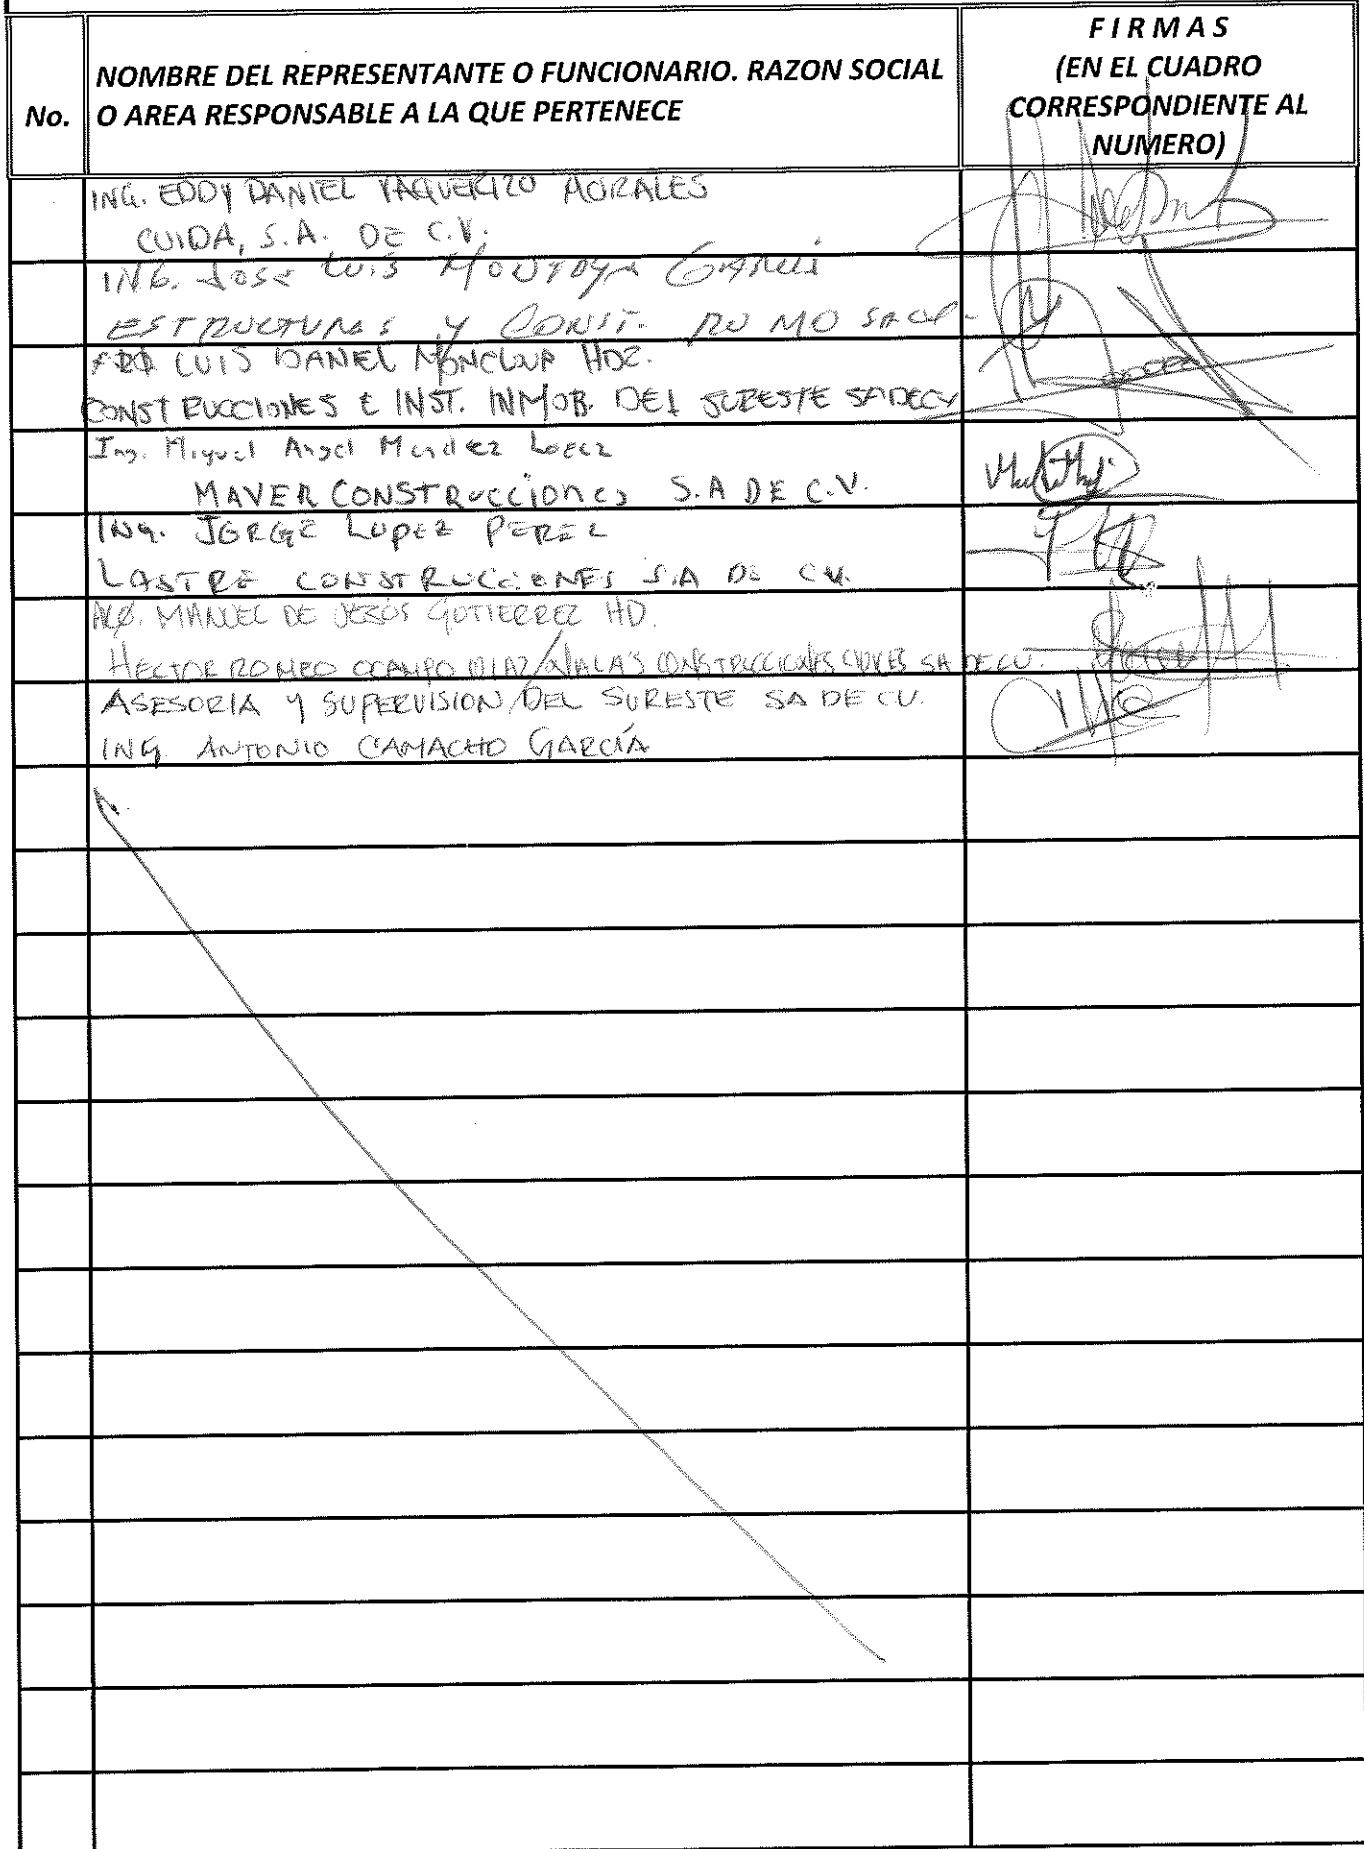 No.
NOMBRE DEL REPRESENTANTE O FUNCIONARIO. RAZON SOCIAL
O AREA RESPONSABLE A LA QUE PERTENECE
FIRMAS
(EN EL CUADRO
CORRESPONDIENTE AL
NUMERO)
ING. EDDY DANIEL VAQUERIZO MORALES
CUIDA, S.A. DE C.V.
ING. JOSE LUIS MONTOYA GARCIA
ESTRUCTURAS Y CONST. MO
LUIS DANIEL HDZ.
CONSTRUCCIONES E INST. INMOB. DEL SURESTE SA DE CV
Ing. Miguel Angel Mendez Lopez
MAVER CONSTRucciones S.A DE C.V.
ING. JORGE LOPEZ PEREZ
LASTRE CONSTRUCCIONES S.A DE C.V.
MANUEL DE JESÚS GUTIERREZ HD.
HECTOR ROMEO OCAMPO DIAZ/ CONSTRUCCIONES CIVILES SA DE CV.
ASESORIA Y SUPERVISION DEL SURESTE SA DE CV.
ING. ANTONIO CAMACHO GARCÍA